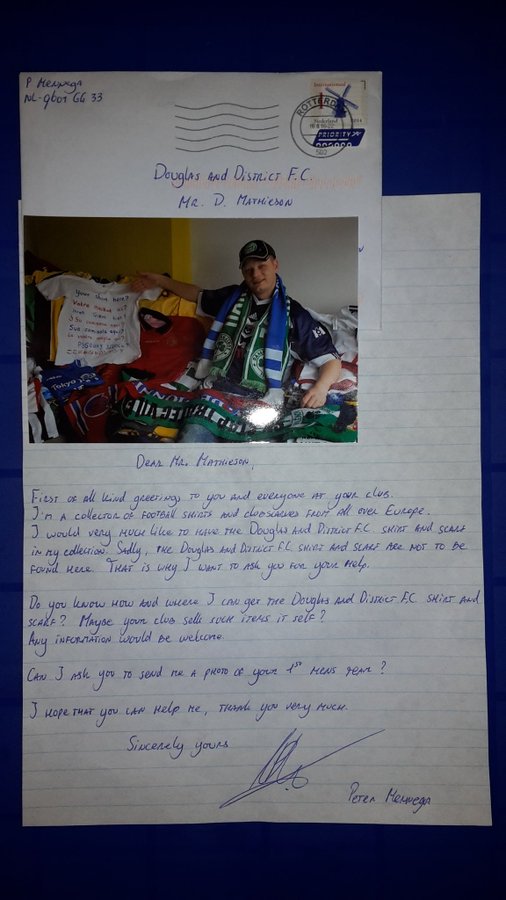 P Mennega
NL-9601 GG 33
International
ROTTERDAM
Nederland 2014
PRIORITY
Douglas and District F.C.
Mr. D. Mathieson
Your shirt here?
Tokyo
Dear Mr. Mathieson,
First of all kind greetings to you and everyone at your club.
I'm a collector of football shirts and clubscarves from all over Europe.
I would very much like to have the Douglas and District F.C. shirt and scarf
in my collection. Sadly, the Douglas and District F.C. shirt and scarf are not to be
found here. That is why I want to ask you for your help.
Do you know how and where I can get the Douglas and District F.C. shirt and
scarf? Maybe your club sells such items it self?
Any information would be welcome.
Can I ask you to send me a photo of your 1st mens team?
I hope that you can help me, thank you very much.
Sincerely yours
Peter Mennega